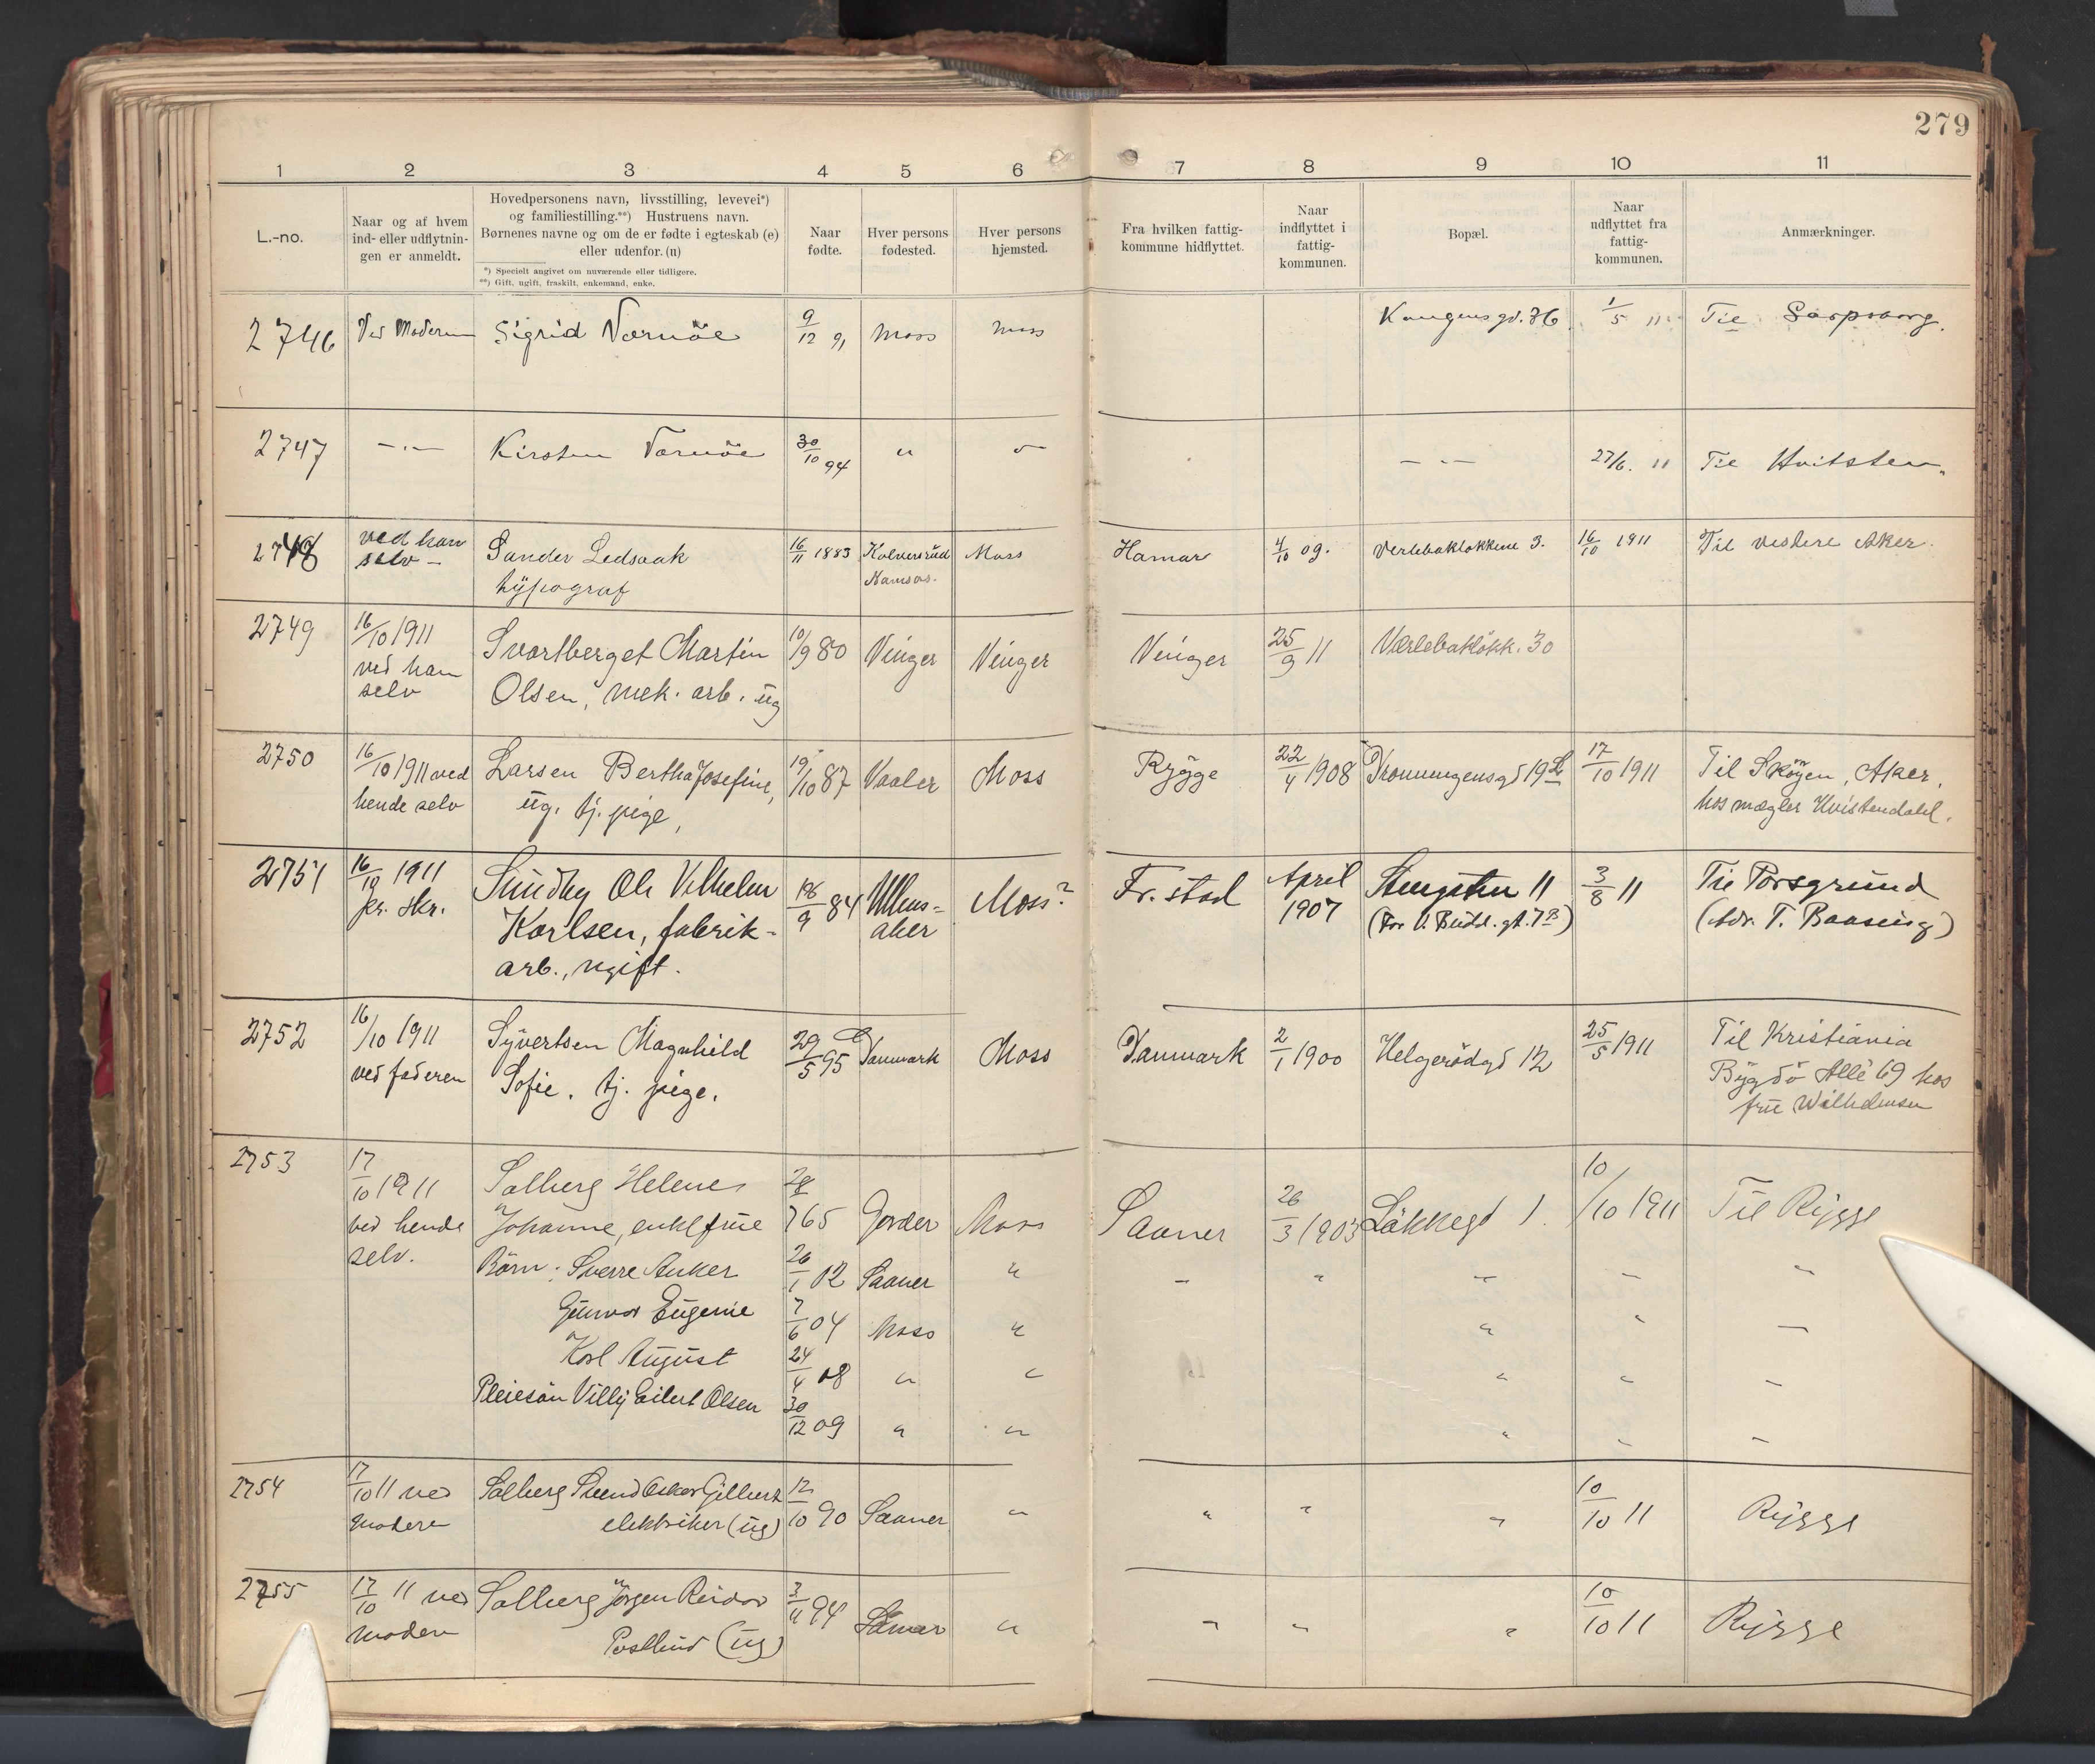 279
1 2 3 4 5 6 7 8 9 10 11
L.-no.
Naar og af hvem
ind- eller udflytnin-
gen er anmeldt.
Hovedpersonens navn, livsstilling, levevei*)
og familiestilling.**) Hustruens navn.
Børnenes navne og om de er fødte i egteskab (e)
eller udenfor. (u)
*) Specielt angivet om nuværende eller tidligere.
**) Gift, ugift, fraskilt, enkemand, enke.
Naar
fødte.
Hver persons
fødested.
Hver persons
hjemsted.
Fra hvilken fattig-
kommune hidflyttet.
Naar
indflyttet i
fattig-
kommunen.
Bopæl.
Naar
udflyttet fra
fattig-
kommunen.
Anmærkninger.
2746 Ved Moderen Sigrid Værnöe 9/12 91 Moss Moss Kongensgd. 36 1/5 11 Til Sarpsborg.
2747 — · — Kirsten Værnöe 30/10 94 " — — · — 27/6. 11 Til Hvitsten.
2748 ved han Sander Ledsaak 16/11 1883 Moss Hamar 4/10 09. Verlebakløkkene 3. 16/10 1911 Til vestere Aker.
selv —
typograf
2749 16/10 1911 Svartberget Martin 10/9 80 Vinger Vinger Vinger 25/9 11 Værlebakløkk. 30
ved han
selv Olsen, mek. arb. ug
2750 16/10 1911 ved Larsen Bertha Josefine, 19/10 87 Vaaler Moss Rygge 22/4 1908 Dronningensgd 19 17/10 1911 Til Skøyen, Aker,
hende selv ug. tj. pige, hos mægler Kvistendahl.
2751 16/10 1911 Sundby Ole Vilhelm 18/9 84 Ullens- Moss? Fr. stad April Stengaten 11 3/8 11 Til Porsgrund
pr. skr. Karlsen, fabrik- aker 1907
arb., ugift.
2752 16/10 1911 Syvertsen Magnhild 29/5 95 Danmark Moss Danmark 2/1 1900 Helgerødgd 12 25/5 1911 Til Kristiania
ved faderen Sofie. tj. pige. Bygdö Allé 69 hos
frue Wilhelmsen
2753 17/10 1911 Solberg Helene Moss Saaner 26/3 1903 Løkkegd 1. 10/10 1911 Til Rygge
ved hende Johanne, enkefrue 65
selv. Börn: Sverre Anker 26/1 02 Saaner " — " — — "
Gunvor Eugenie 7/6 04 Moss " " " —
Karl August 24/4 08 " " " " —
Pleiesön Villy Eilert Olsen 30/12 09 " " " " —
2754 17/10 11 ved Solberg Svend Oskar Gilbert 12/10 90 Saaner " " " " 10/10 11 Rygge
moderen elektriker (ug)
2755 17/10 11 ved Solberg Jörgen Reidar 3/11 94 Saaner " " " " 10/10 11 Rygge
moderen Postbud (ug)